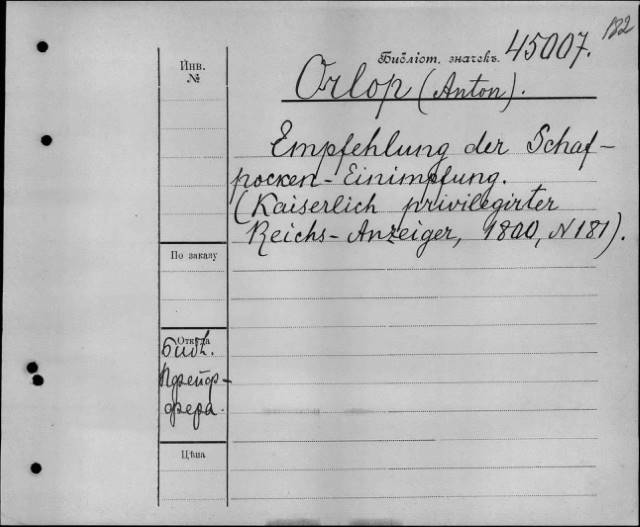 182
Инв. №
Библіот. значекъ. 45007.
Orlop (Anton).
Empfehlung der Schaf-
pocken-Einimpfung.
(Kaiserlich privilegirter
Reichs-Anzeiger, 1800, N 181).
По заказу
Откуда
Библ.
Пфейф-
фера.
Цѣна